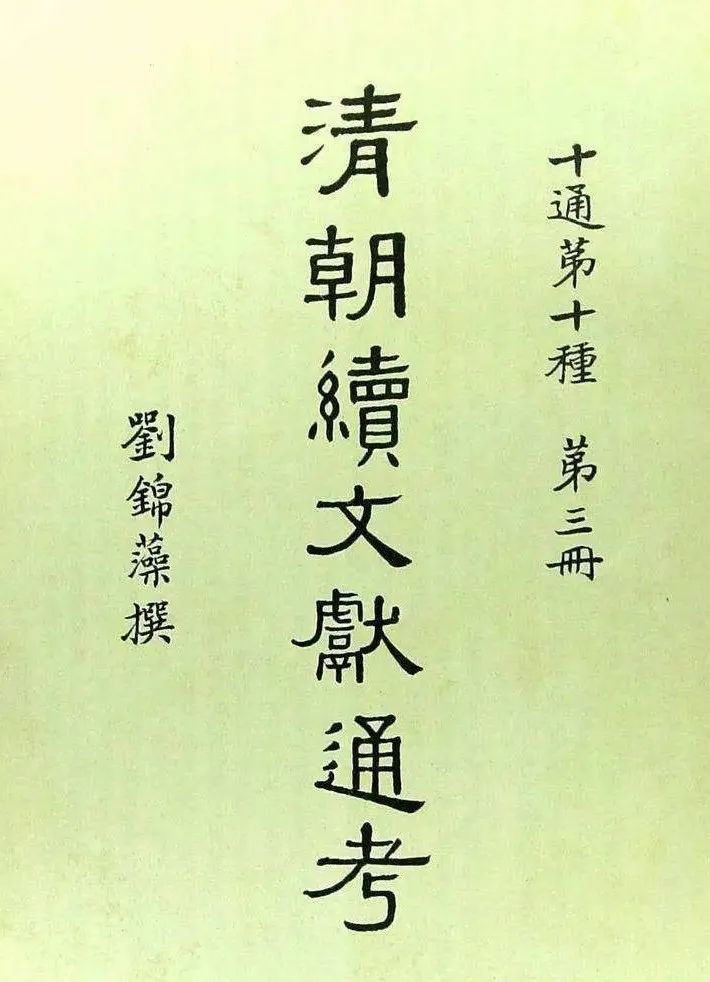 十通第十種 第三冊
清朝續文獻通考
劉錦藻撰